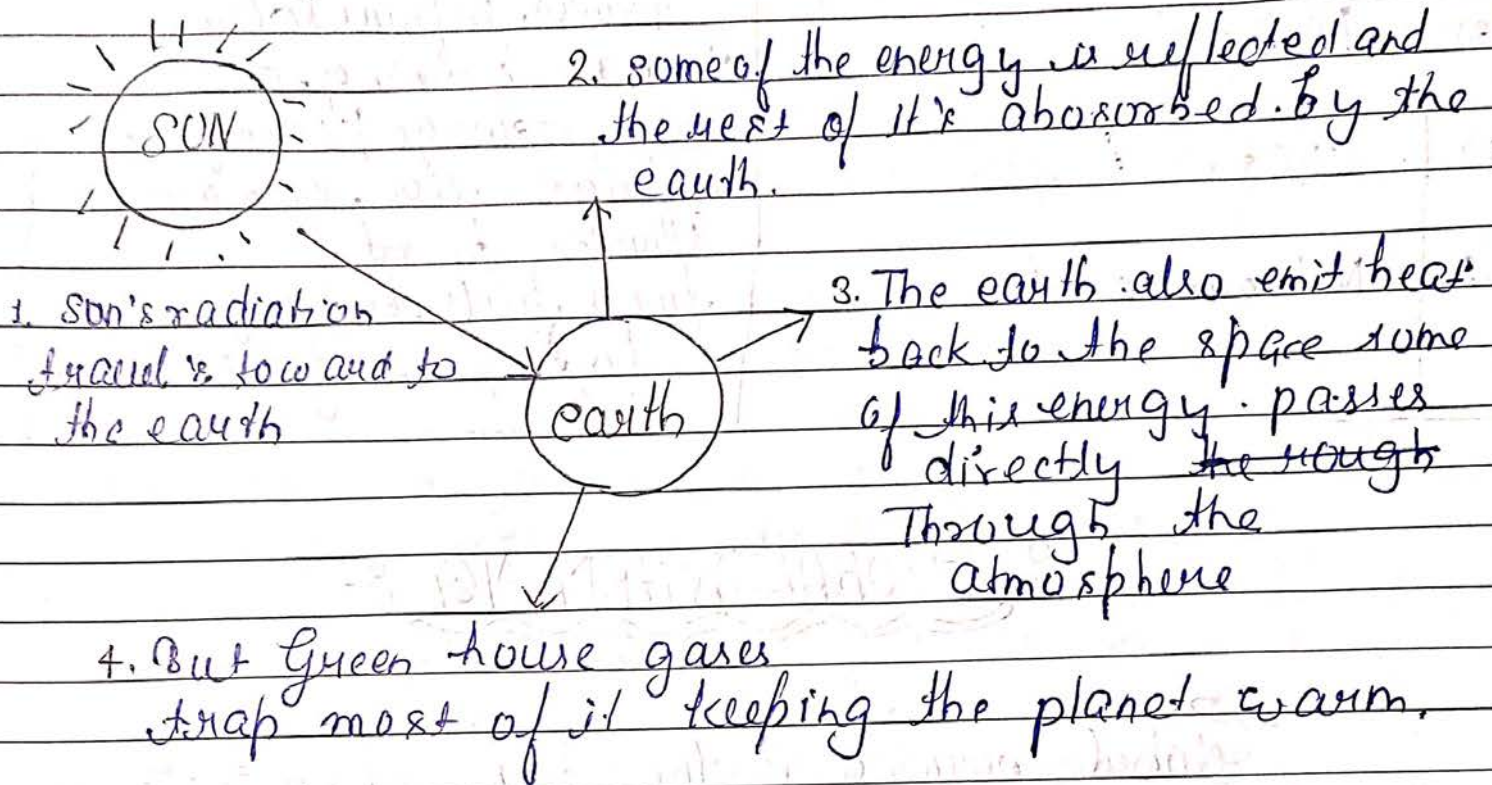 SUN
2. some of the energy is reflected and
the rest of it's abosorbed. by the
earth.
1. Sun's radiation
travel's toward to
the earth
earth
3. The earth also emit heat
back to the space some
of this energy. passes
directly the rough
Through the
atmosphere
4. But Green house gases
trap most of it keeping the planet warm.